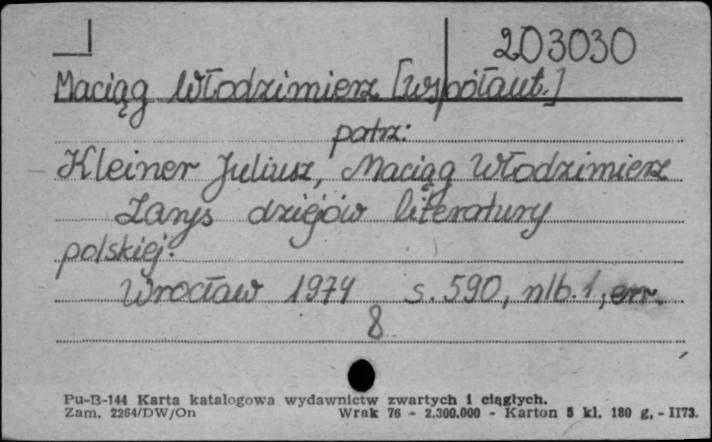 203030
Maciąg Włodzimierz [współaut.]
patrz:
Kleiner Juliusz, Maciąg Włodzimierz
Zarys dziejów literatury
polskiej.
Wrocław 1974 s. 590, nlb. 1, err.
8
Pu-B-144 Karta katalogowa wydawnictw zwartych i ciągłych.
Zam. 2264/DW/On Wrak 76 - 2.300.000 - Karton 5 kl. 180 g. - II73.